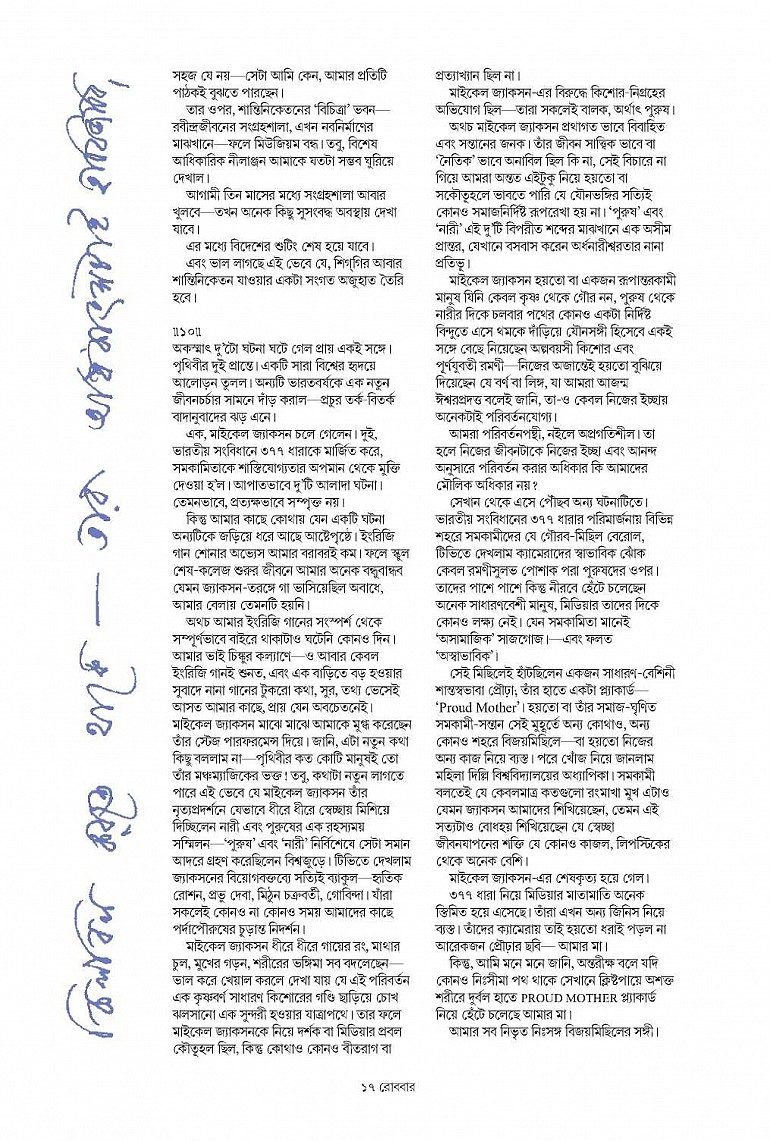 সহজ যে নয়—সেটা আমি কেন, আমার প্রতিটি
পাঠকই বুঝতে পারছেন।
তার ওপর, শান্তিনিকেতনের ‘বিচিত্রা’ ভবন—
রবীন্দ্রজীবনের সংগ্রহশালা, এখন নবনির্মাণের
মাঝখানে—ফলে মিউজিয়ম বন্ধ। তবু, বিশেষ
আধিকারিক নীলাঞ্জন আমাকে যতটা সম্ভব ঘুরিয়ে
দেখাল।
আগামী তিন মাসের মধ্যে সংগ্রহশালা আবার
খুলবে—তখন অনেক কিছু সুসংবদ্ধ অবস্থায় দেখা
যাবে।
এর মধ্যে বিদেশের শুটিং শেষ হয়ে যাবে।
এবং ভাল লাগছে এই ভেবে যে, শিগ্‌গির আবার
শান্তিনিকেতন যাওয়ার একটা সংগত অজুহাত তৈরি
হবে।
॥১০॥
অকস্মাৎ দু’টো ঘটনা ঘটে গেল প্রায় একই সঙ্গে।
পৃথিবীর দুই প্রান্তে। একটি সারা বিশ্বের হৃদয়ে
আলোড়ন তুলল। অন্যটি ভারতবর্ষকে এক নতুন
জীবনচর্চার সামনে দাঁড় করাল—প্রচুর তর্ক-বিতর্ক
বাদানুবাদের ঝড় এনে।
এক, মাইকেল জ্যাকসন চলে গেলেন। দুই,
ভারতীয় সংবিধানে ৩৭৭ ধারাকে মার্জিত করে,
সমকামিতাকে শাস্তিযোগ্যতার অপমান থেকে মুক্তি
দেওয়া হ’ল। আপাতভাবে দু’টি আলাদা ঘটনা।
তেমনভাবে, প্রত্যক্ষভাবে সম্পৃক্ত নয়।
কিন্তু আমার কাছে কোথায় যেন একটি ঘটনা
অন্যটিকে জড়িয়ে ধরে আছে আষ্টেপৃষ্ঠে। ইংরিজি
গান শোনার অভ্যেস আমার বরাবরই কম। ফলে স্কুল
শেষ-কলেজ শুরুর জীবনে আমার অনেক বন্ধুবান্ধব
যেমন জ্যাকসন-তরঙ্গে গা ভাসিয়েছিল অবাধে,
আমার বেলায় তেমনটি হয়নি।
অথচ আমার ইংরিজি গানের সংস্পর্শ থেকে
সম্পূর্ণভাবে বাইরে থাকাটাও ঘটেনি কোনও দিন।
আমার ভাই চিঙ্কুর কল্যাণে—ও আবার কেবল
ইংরিজি গানই শুনত, এবং এক বাড়িতে বড় হওয়ার
সুবাদে নানা গানের টুকরো কথা, সুর, তথ্য ভেসেই
আসত আমার কাছে, প্রায় যেন অবচেতনেই।
মাইকেল জ্যাকসন মাঝে মাঝে আমাকে মুগ্ধ করেছেন
তাঁর স্টেজ পারফরমেন্স দিয়ে। জানি, এটা নতুন কথা
কিছু বললাম না—পৃথিবীর কত কোটি মানুষই তো
তাঁর মঞ্চম্যাজিকের ভক্ত! তবু, কথাটা নতুন লাগতে
পারে এই ভেবে যে মাইকেল জ্যাকসন তাঁর
নৃত্যপ্রদর্শনে যেভাবে ধীরে ধীরে স্বেচ্ছায় মিশিয়ে
দিচ্ছিলেন নারী এবং পুরুষের এক রহস্যময়
সম্মিলন—‘পুরুষ’ এবং ‘নারী’ নির্বিশেষে সেটা সমান
আদরে গ্রহণ করেছিলেন বিশ্বজুড়ে। টিভিতে দেখলাম
জ্যাকসনের বিয়োগবক্তব্যে সত্যিই ব্যাকুল—হৃতিক
রোশন, প্রভু দেবা, মিঠুন চক্রবর্তী, গোবিন্দা। যাঁরা
সকলেই কোনও না কোনও সময় আমাদের কাছে
পর্দাপৌরুষের চূড়ান্ত নিদর্শন।
মাইকেল জ্যাকসন ধীরে ধীরে গায়ের রং, মাথার
চুল, মুখের গড়ন, শরীরের ভঙ্গিমা সব বদলেছেন—
ভাল করে খেয়াল করলে দেখা যায় যে এই পরিবর্তন
এক কৃষ্ণবর্ণ সাধারণ কিশোরের গণ্ডি ছাড়িয়ে চোখ
ঝলসানো এক সুন্দরী হওয়ার যাত্রাপথে। তার ফলে
মাইকেল জ্যাকসনকে নিয়ে দর্শক বা মিডিয়ার প্রবল
কৌতূহল ছিল, কিন্তু কোথাও কোনও বীতরাগ বা
প্রত্যাখ্যান ছিল না।
মাইকেল জ্যাকসন-এর বিরুদ্ধে কিশোর-নিগ্রহের
অভিযোগ ছিল—তারা সকলেই বালক, অর্থাৎ পুরুষ।
অথচ মাইকেল জ্যাকসন প্রথাগত ভাবে বিবাহিত
এবং সন্তানের জনক। তাঁর জীবন সাত্ত্বিক ভাবে বা
‘নৈতিক’ ভাবে অনাবিল ছিল কি না, সেই বিচারে না
গিয়ে আমরা অন্তত এইটুকু নিয়ে হয়তো বা
সকৌতূহলে ভাবতে পারি যে যৌনভঙ্গির সত্যিই
কোনও সমাজনির্দিষ্ট রূপরেখা হয় না। ‘পুরুষ’ এবং
‘নারী’ এই দু’টি বিপরীত শব্দের মাঝখানে এক অসীম
প্রান্তর, যেখানে বসবাস করেন অর্ধনারীশ্বরতার নানা
প্রতিভূ।
মাইকেল জ্যাকসন হয়তো বা একজন রূপান্তরকামী
মানুষ যিনি কেবল কৃষ্ণ থেকে গৌর নন, পুরুষ থেকে
নারীর দিকে চলবার পথের কোনও একটা নির্দিষ্ট
বিন্দুতে এসে থমকে দাঁড়িয়ে যৌনসঙ্গী হিসেবে একই
সঙ্গে বেছে নিয়েছেন অল্পবয়সী কিশোর এবং
পূর্ণযুবতী রমণী—নিজের অজান্তেই হয়তো বুঝিয়ে
দিয়েছেন যে বর্ণ বা লিঙ্গ, যা আমরা আজন্ম
ঈশ্বরপ্রদত্ত বলেই জানি, তা-ও কেবল নিজের ইচ্ছায়
অনেকটাই পরিবর্তনযোগ্য।
আমরা পরিবর্তনপন্থী, নইলে অপ্রগতিশীল। তা
হলে নিজের জীবনটাকে নিজের ইচ্ছা এবং আনন্দ
অনুসারে পরিবর্তন করার অধিকার কি আমাদের
মৌলিক অধিকার নয়?
সেখান থেকে এসে পৌঁছব অন্য ঘটনাটিতে।
ভারতীয় সংবিধানের ৩৭৭ ধারার পরিমার্জনায় বিভিন্ন
শহরে সমকামীদের যে গৌরব-মিছিল বেরোল,
টিভিতে দেখলাম ক্যামেরাদের স্বাভাবিক ঝোঁক
কেবল রমণীসুলভ পোশাক পরা পুরুষদের ওপর।
তাদের পাশে পাশে কিন্তু নীরবে হেঁটে চলেছেন
অনেক সাধারণবেশী মানুষ, মিডিয়ার তাদের দিকে
কোনও লক্ষ্য নেই। যেন সমকামিতা মানেই
‘অসামাজিক’ সাজগোজ।—এবং ফলত
‘অস্বাভাবিক’।
সেই মিছিলেই হাঁটছিলেন একজন সাধারণ-বেশিনী
শান্তস্বভাবা প্রৌঢ়া, তাঁর হাতে একটা প্ল্যাকার্ড—
‘Proud Mother’। হয়তো বা তাঁর সমাজ-ঘৃণিত
সমকামী-সন্তান সেই মুহূর্তে অন্য কোথাও, অন্য
কোনও শহরে বিজয়মিছিলে—বা হয়তো নিজের
অন্য কাজ নিয়ে ব্যস্ত। পরে খোঁজ নিয়ে জানলাম
মহিলা দিল্লি বিশ্ববিদ্যালয়ের অধ্যাপিকা। সমকামী
বলতেই যে কেবলমাত্র কতগুলো রংমাখা মুখ এটাও
যেমন জ্যাকসন আমাদের শিখিয়েছেন, তেমন এই
সত্যটাও বোধহয় শিখিয়েছেন যে স্বেচ্ছা
জীবনযাপনের শক্তি যে কোনও কাজল, লিপস্টিকের
থেকে অনেক বেশি।
মাইকেল জ্যাকসন-এর শেষকৃত্য হয়ে গেল।
৩৭৭ ধারা নিয়ে মিডিয়ার মাতামাতি অনেক
স্তিমিত হয়ে এসেছে। তাঁরা এখন অন্য জিনিস নিয়ে
ব্যস্ত। তাঁদের ক্যামেরায় তাই হয়তো ধরাই পড়ল না
আরেকজন প্রৌঢ়ার ছবি— আমার মা।
কিন্তু, আমি মনে মনে জানি, অন্তরীক্ষ বলে যদি
কোনও নিঃসীমা পথ থাকে সেখানে ক্লিষ্টপায়ে অশক্ত
শরীরে দুর্বল হাতে PROUD MOTHER প্ল্যাকার্ড
নিয়ে হেঁটে চলেছে আমার মা।
আমার সব নিভৃত নিঃসঙ্গ বিজয়মিছিলের সঙ্গী।
১৭ রোববার